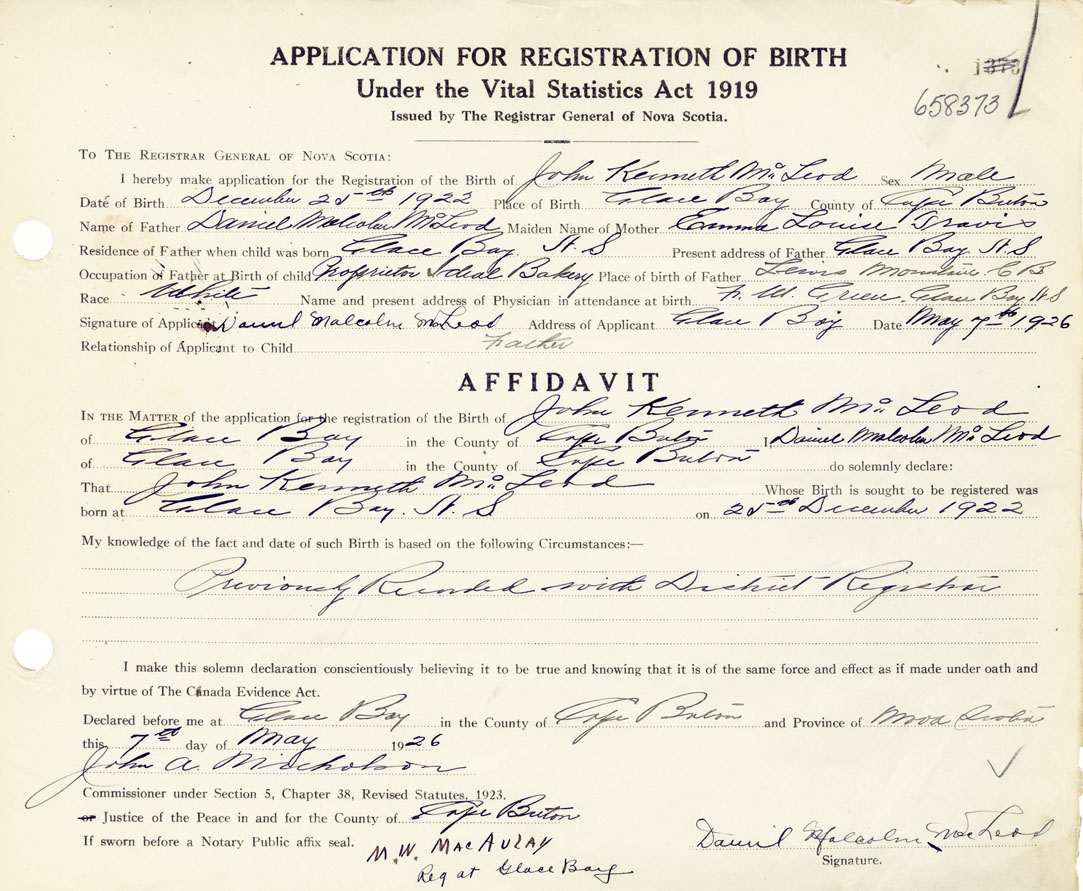 APPLICATION FOR REGISTRATION OF BIRTH
Under the Vital Statistics Act 1919
Issued by The Registrar General of Nova Scotia.
658373
TO THE REGISTRAR GENERAL OF NOVA SCOTIA:
I hereby make application for the Registration of the Birth of John Kenneth McLeod Sex Male
Date of Birth December 25th 1922 Place of Birth Glace Bay County of Cape Breton
Name of Father Daniel Malcolm McLeod Maiden Name of Mother Emma Louise Travis
Residence of Father when child was born Glace Bay N.S Present address of Father Glace Bay N.S
Occupation of Father at Birth of child Proprietor Ideal Bakery Place of birth of Father Lewis Mountain C B
Race White Name and present address of Physician in attendance at birth F. W. Green. Glace Bay N S
Signature of Applicant Daniel Malcolm McLeod Address of Applicant Glace Bay Date May 7th 1926
Relationship of Applicant to Child Father
AFFIDAVIT
IN THE MATTER of the application for the registration of the Birth of John Kenneth McLeod
of Glace Bay in the County of Cape Breton I Daniel Malcolm McLeod
of Glace Bay in the County of Cape Breton do solemnly declare:
That John Kenneth McLeod Whose Birth is sought to be registered was
born at Glace Bay. N. S on 25th December 1922
My knowledge of the fact and date of such Birth is based on the following Circumstances:—
Previously Recorded with District Registrar
I make this solemn declaration conscientiously believing it to be true and knowing that it is of the same force and effect as if made under oath and
by virtue of The Canada Evidence Act.
Declared before me at Glace Bay in the County of Cape Breton and Province of Nova Scotia
this 7th day of May 1926
John A. Nicholson
Commissioner under Section 5, Chapter 38, Revised Statutes, 1923.
or Justice of the Peace in and for the County of Cape Breton
If sworn before a Notary Public affix seal.
M. W. MacAulay
Reg at Glace Bay
Daniel Malcolm McLeod
Signature.